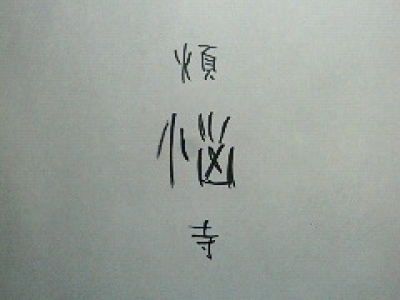 煩
悩
寺